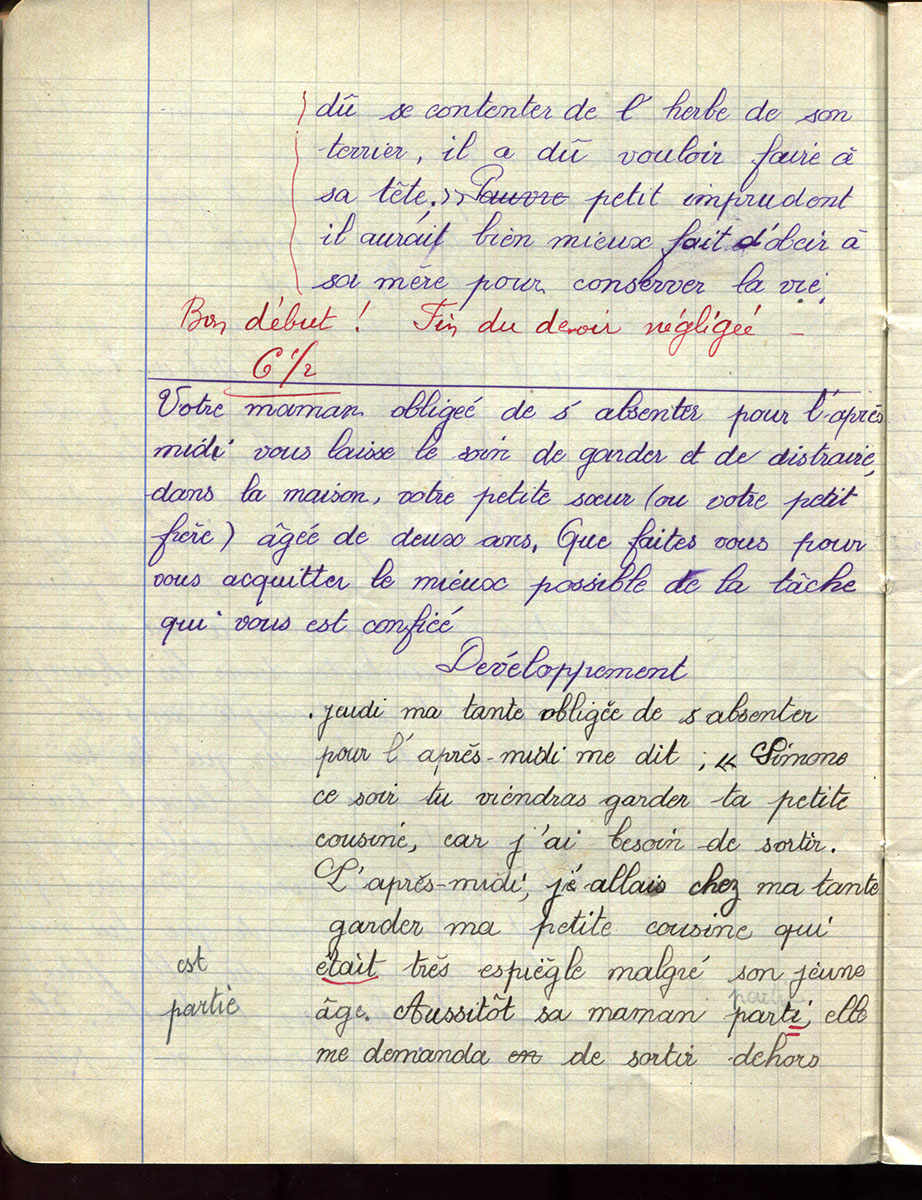 dû se contenter de l'herbe de son
terrier, il a dû vouloir faire à
sa tête.» Pauvre petit imprudent
il aurait bien mieux fait d'obeir à
sa mère pour conserver la vie.
Bon début ! Fin du devoir négligée -
6 1/2
Votre maman obligée de s'absenter pour l'après
midi vous laisse le soin de garder et de distraire,
dans la maison, votre petite sœur (ou votre petit
frère) âgée de deux ans. Que faites vous pour
vous acquitter le mieux possible de la tâche
qui vous est confiée
Devéloppement
jeudi ma tante obligée de s'absenter
pour l'après-midi me dit ; « Simone
ce soir tu viendras garder ta petite
cousine, car j'ai besoin de sortir.
L'après-midi, je allais chez ma tante
garder ma petite cousine qui
est
était très espiègle malgré son jeune
partie
partie
âge. Aussitôt sa maman parti, elle
me demanda en de sortir dehors